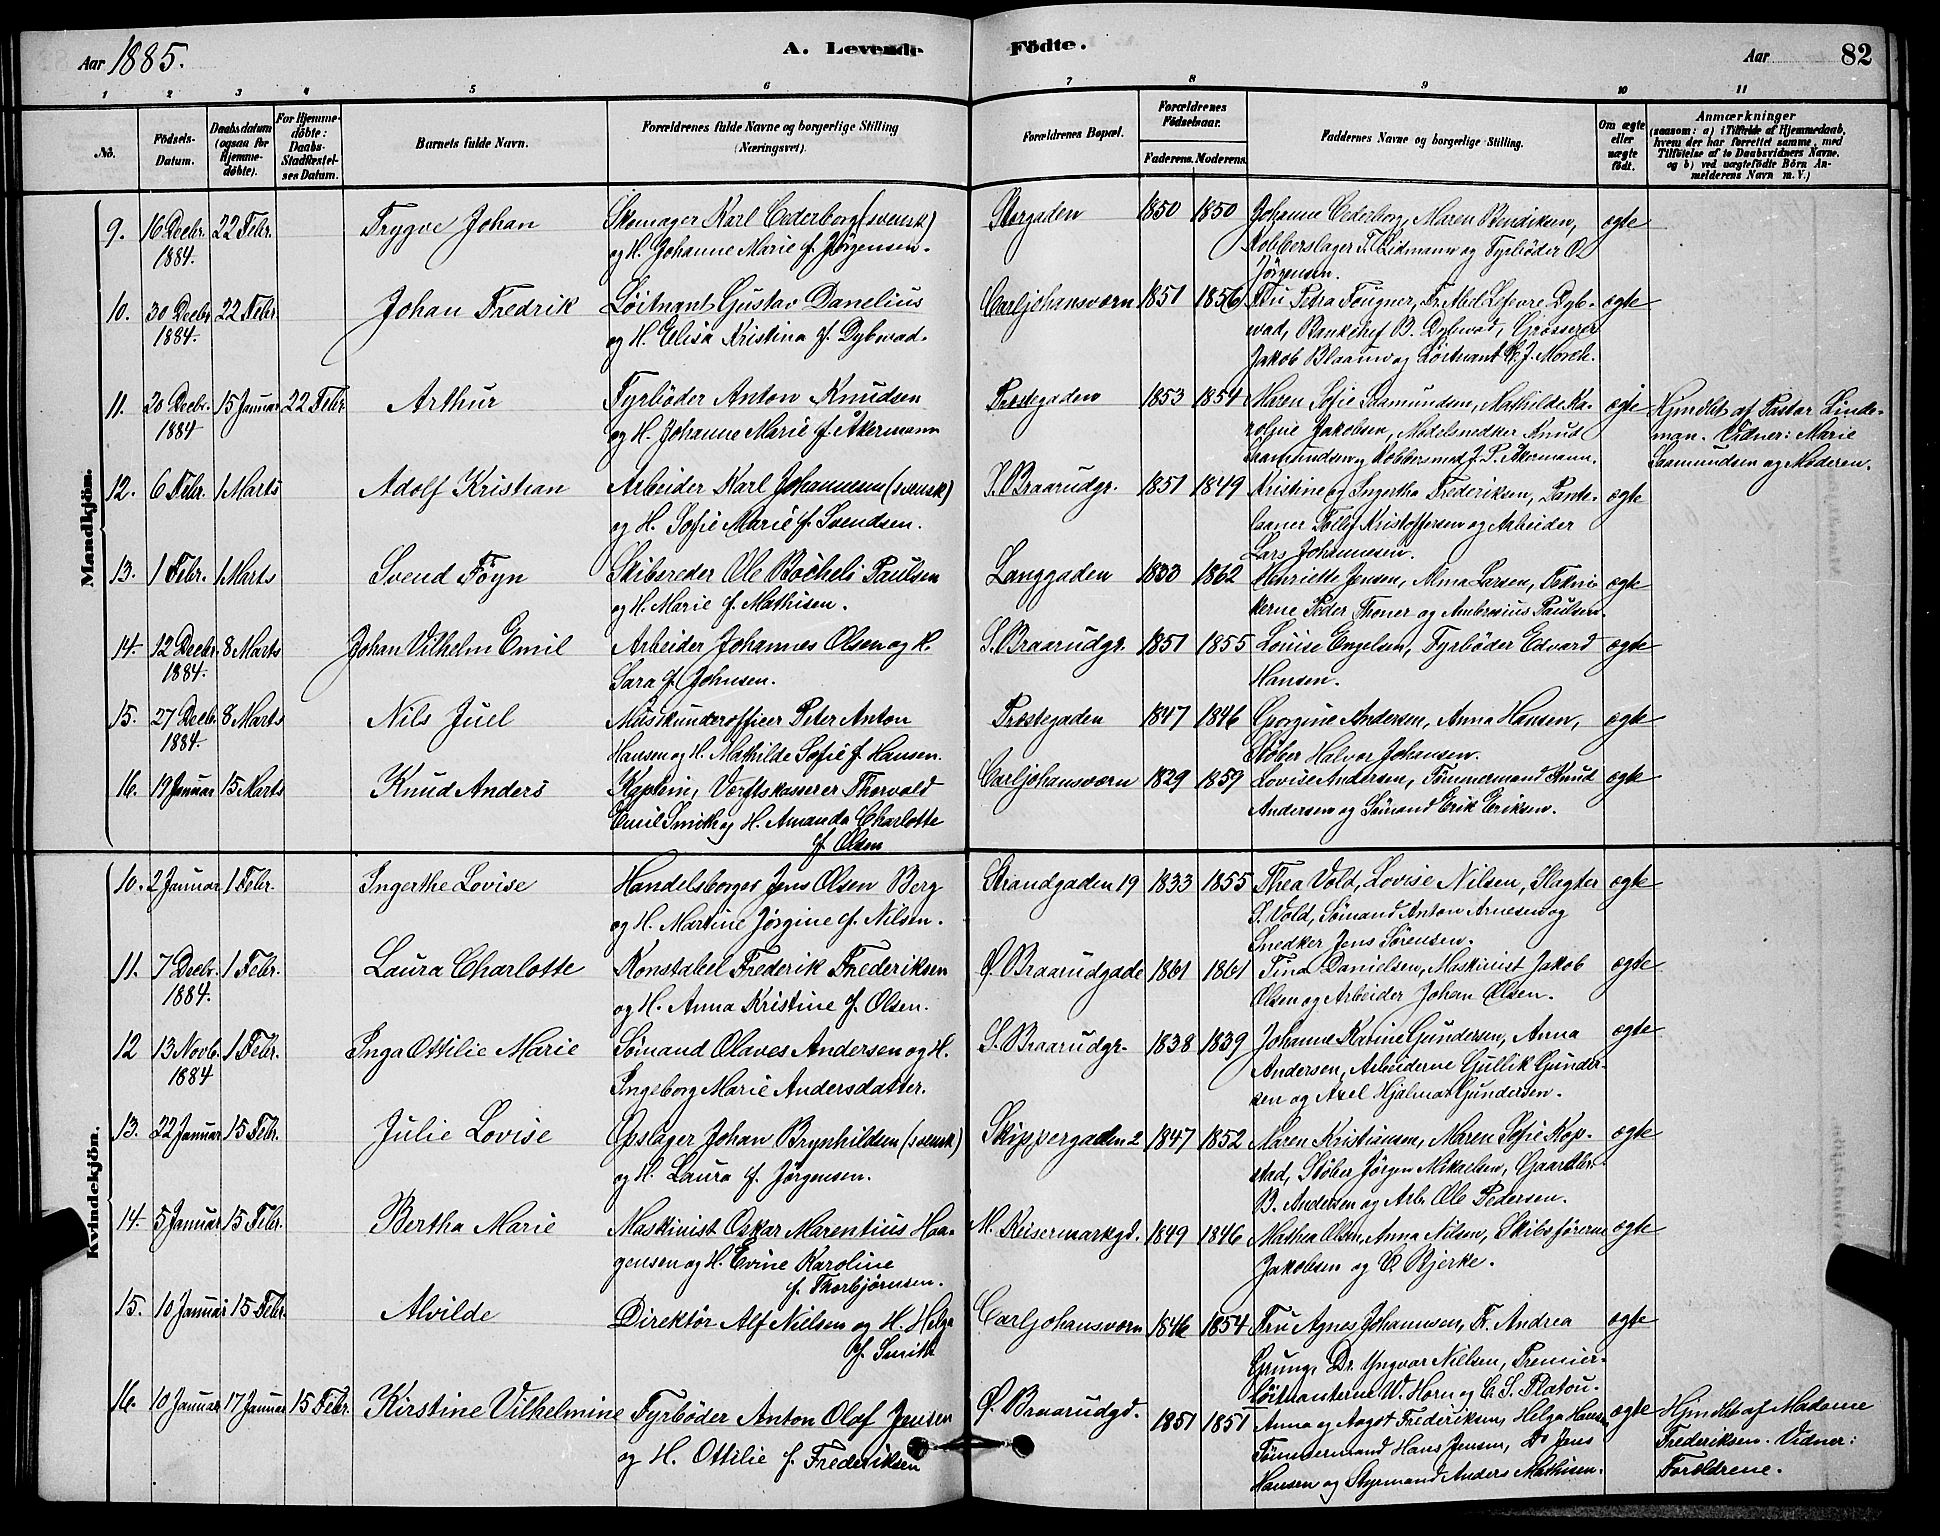 Aar 1885.
A. Levende
Födte.
Aar
82
1 2 3 4 5 6 7 8 9 10 11
No.
Födsels-
Datum.
Daabsdatum
(ogsaa for
Hjemme-
döbte).
For Hjemme-
döbte:
Daabs-
Stadfæstel-
ses Datum.
Barnets fulde Navn.
Forældrenes fulde Navne og borgerlige Stilling
(Næringsvei).
Forældrenes Bopæl.
Forældrenes
Födselsaar.
Faderens. Moderens.
Faddernes Navne og borgerlige Stilling.
Om ægte
eller
uægte
födt.
Anmærkninger
(saasom: a) i Tilfælde af Hjemmedaab,
hvem der har forrettet samme, med
Tilföielse af to Daabsvidners Navne,
og b) ved uægtefödte Börn An-
melderens Navn m. V.)
Mandkjön.
9. 16 Decbr. 22 Febr. Trygve Johan Skomager Karl Cederborg (svensk) Storgaden 1850 1850 Johanne Cederborg, Maren Bendiksen, ægte
1884. og H. Johanne Marie f. Jørgensen. Kobberslager T. Lidmann og Fyrbøder O.
Jørgensen.
10. 30 Decbr 22 Febr Johan Fredrik Løitnant Gustav Danelius Carljohansværn 1851 1856 Fru Petra Fougner, Fr. Abel Lefevre Dyb- ægte
1884. og H. Elisa Kristina f. Dybwad. wad, Bankchef B. Dybwad, Grosserer
Jakob Blaauw og Løitnant C. J. Mørch.
11. 20 Decbr. 15 Januar 22 Febr Arthur Fyrbøder Anton Knudsen Prestegaden 1853 1854 Maren Sofie Saamundsen, Mathilde Ka- ægte Hjmdbt af Pastor Linde-
1884 og H. Johanne Marie f. Åkermann roline Jakobsen, Modelsnedker Knud man. Vidner: Marie
Saamundsen og Kobbersmed J. P. Åkermann. Saamundsen og Moderen.
12. 6 Febr. 1 Marts Adolf Kristian Arbeider Karl Johannesen (svensk) S. Braarudgr. 1851 1849 Kristine og Ingertha Frederiksen, Pante- ægte
og H. Sofie Marie f. Svendsen. laaner Tollef Kristoffersen og Arbeider
Lars Johannesen.
13. 1 Febr. 1 Marts Svend Föyn Skibsreder Ole Bochels Paulsen Langgaden 1833 1862 Henriette Jensen, Alma Larsen, Tekni- ægte
og H. Marie f. Mathisen. kerne Peder Thoner og Ambrosius Paulsen.
14. 12 Decbr. 8 Marts Johan Vilhelm Emil Arbeider Johannes Olsen og H. S. Braarudgr. 1851 1855 Louise Engelsen, Fyrbøder Edvard ægte
1884. Sara f. Johnsen. Hansen.
15. 27 Decbr. 8 Marts Nils Juel Maskunderofficer Peter Anton Prestegaden 1847 1846 Georgine Andersen, Anna Hansen, ægte
1884. Hansen og H. Mathilde Sofie f. Hansen. Støber Halvor Johansen.
16. 19 Januar 15 Marts Knud Anders Kaptein, Værftskasserer Thorvald Carljohansværn 1829 1859 Lovise Andersen, Tømmermand Knud ægte
Emil Smith og H. Amanda Charlotte Andersen og Sømand Erik Eriksen.
f. Olsen
Kvindekjön.
10. 2 Januar 1 Febr. Ingerthe Lovise Handelsborger Jens Olsen Berg Strandgaden 19 1833 1855 Thea Vold, Lovise Nilsen, Slagter ægte
og H. Martine Jørgine f. Nilsen. S. Vold, Sømand Anton Arnesen og
Snedker Jens Sørensen.
11. 7 Decbr. 1 Febr. Laura Charlotte Konstabel Frederik Frederiksen Ø. Braarudgade 1861 1861 Tina Danielsen, Maskinist Jakob ægte
1884. og H. Anna Kristine f. Olsen. Olsen og Arbeider Johan Olsen.
12 13 Novb. 1 Febr. Inga Ottilie Marie Sømand Olaves Andersen og H. S. Braarudgr. 1838 1839 Johanne Karine Gundersen, Anna ægte
1884 Ingeborg Marie Andersdatter. Andersen, Arbeiderne Gullik Gunder-
sen og Axel Hjalmar Gundersen.
13. 22 Januar 15 Febr. Julie Lovise Opslager Johan Brynhildsen (svensk) Skippergaden 2 1847 1852 Maren Kristiansen, Maren Sofie Kop- ægte
og H. Laura f. Jørgensen. stad, Støber Jørgen Mikaelsen, Gaardbr.
B. Andersen og Arb. Ole Pedersen.
14. 5 Januar 15 Febr. Bertha Marie Maskinist Oskar Marentius Haa- M. Keisermarkgd. 1849 1846 Mathea Olsen, Anna Nilsen, Skibsførerne ægte
gensen og H. Evine Karoline Jakobsen og C. Bjerke.
f. Thorbjørnsen.
15. 10 Januar 15 Febr. Alvilde Direktør Alf Nielsen og H. Helga Carljohansværn 1846 1854 Fru Agnes Johannsen, Fr. Andrea ægte
f. Smith Grung, Dr. Yngvar Nielsen, Premier-
løitnanterne W. Horn og C. S. Platou.
16. 10 Januar 17 Januar 15 Febr. Kirstine Vilhelmine Fyrbøder Anton Olaf Jensen Ø. Braarudgd. 1851 1851 Anna og Aagot Frederiksen, Helga Hansen ægte Hjmdbt af Madame
og H. Ottilie f. Frederiksen Tømmermand Hans Jensen, Do Jens Frederiksen. Vidner:
Hansen og Styrmand Anders Mathisen. Forældrene.